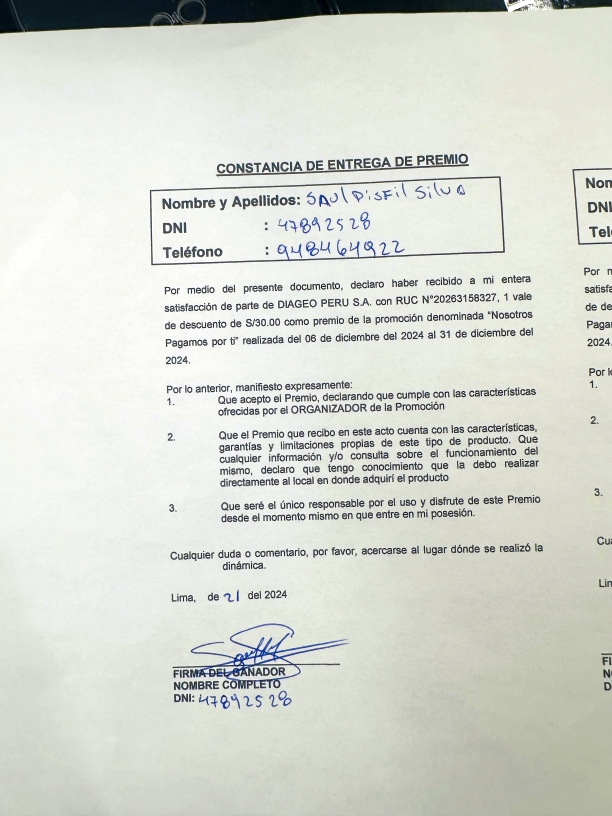 CONSTANCIA DE ENTREGA DE PREMIO
Nombre y Apellidos: SAUl DisFil Silva
DNI : 47892528
Teléfono : 948464922
Por medio del presente documento, declaro haber recibido a mi entera
satisfacción de parte de DIAGEO PERU S.A. con RUC N°20263158327, 1 vale
de descuento de S/30.00 como premio de la promoción denominada "Nosotros
Pagamos por ti" realizada del 06 de diciembre del 2024 al 31 de diciembre del
2024.
Por lo anterior, manifiesto expresamente:
1. Que acepto el Premio, declarando que cumple con las características
ofrecidas por el ORGANIZADOR de la Promoción
2. Que el Premio que recibo en este acto cuenta con las características,
garantías y limitaciones propias de este tipo de producto. Que
cualquier información y/o consulta sobre el funcionamiento del
mismo, declaro que tengo conocimiento que la debo realizar
directamente al local en donde adquirí el producto
3. Que seré el único responsable por el uso y disfrute de este Premio
desde el momento mismo en que entre en mi posesión.
Cualquier duda o comentario, por favor, acercarse al lugar dónde se realizó la
dinámica.
Lima, de 21 del 2024
FIRMA DEL GANADOR
NOMBRE COMPLETO
DNI: 47892528
DNI
2024.
1.
2.
3.